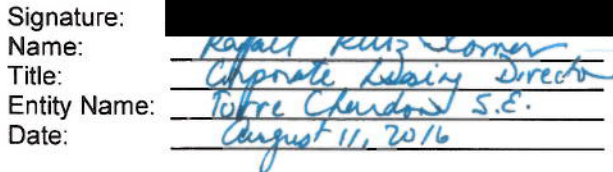 Signature:
Name: Rafael Ruiz Comer
Title: Corporate Leasing Director
Entity Name: Torre Chardon S.E.
Date: August 11, 2016